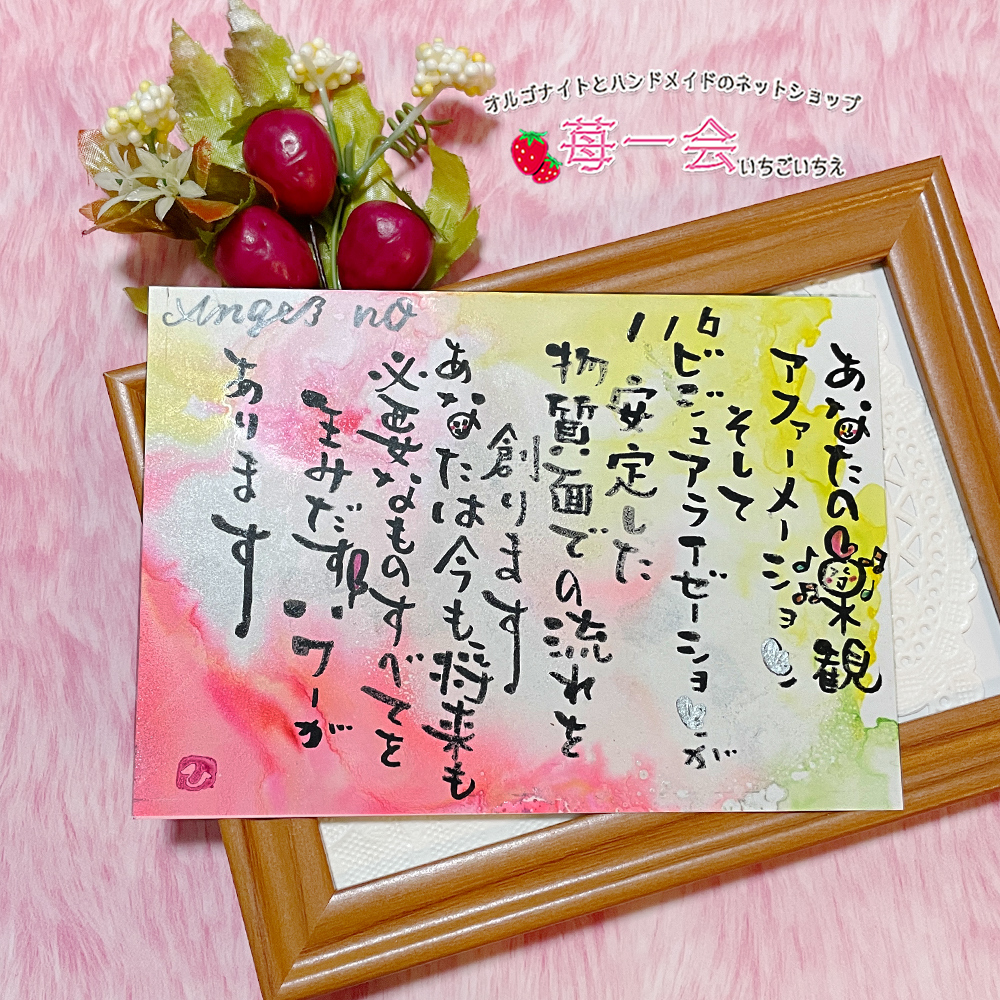 オルゴナイトとハンドメイドのネットショップ
苺一会
いちごいちえ
Angel no
116
あなたの楽観
アファーメーション
そして
ビジュアライゼーションが
安定した
物質面での流れを
創ります
あなたは今も将来も
必要なものすべてを
生みだすパワーが
あります